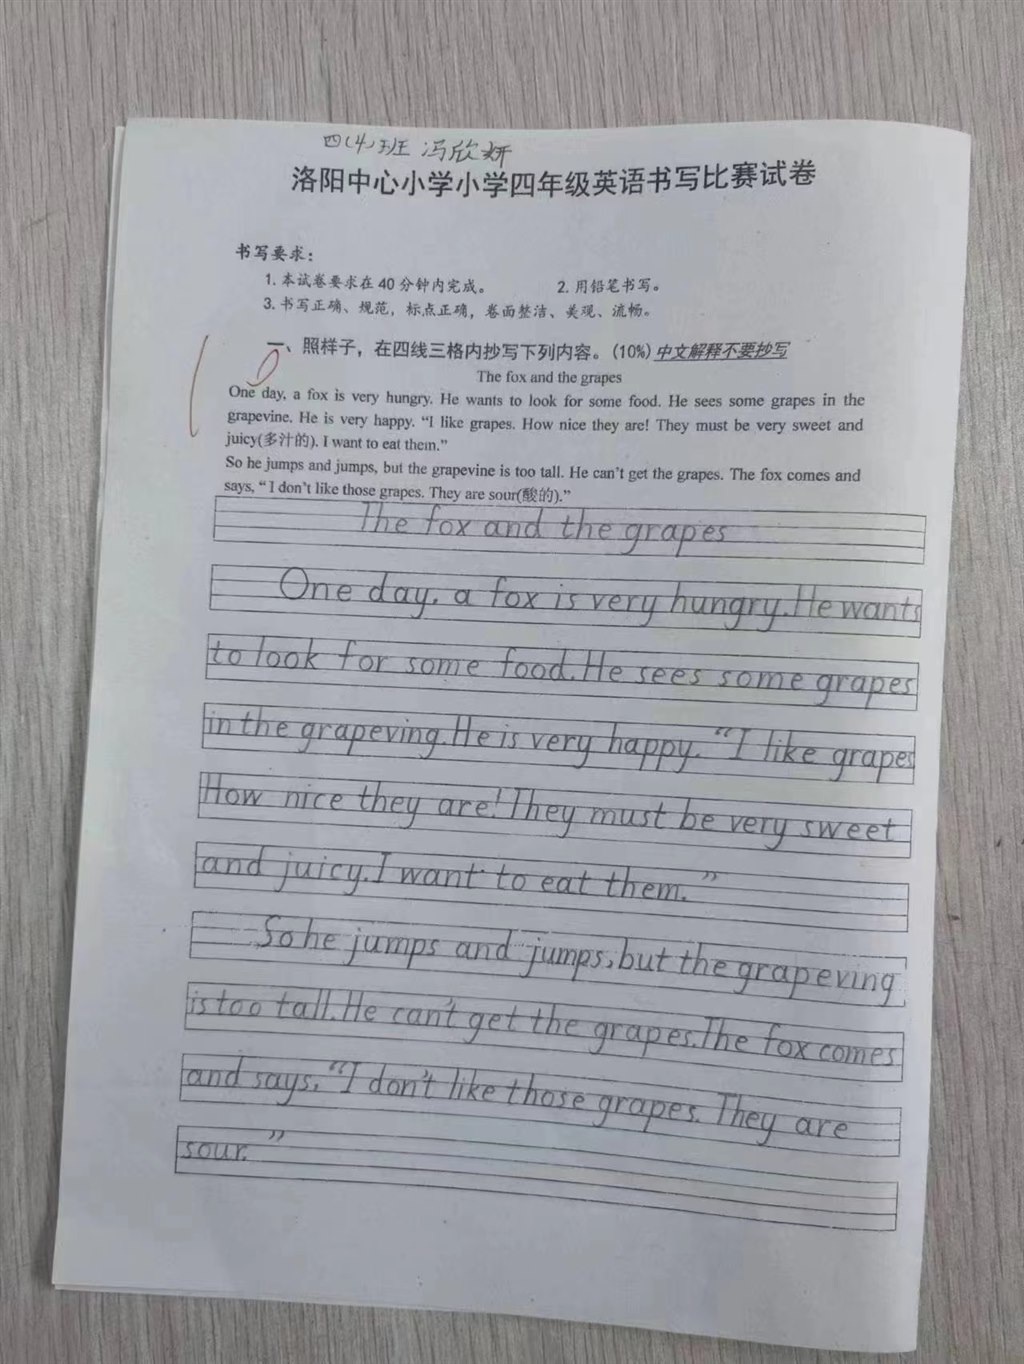 四(4)班 冯欣妍
洛阳中心小学小学四年级英语书写比赛试卷
书写要求：
1. 本试卷要求在 40 分钟内完成。 2. 用铅笔书写。
3. 书写正确、规范，标点正确，卷面整洁、美观、流畅。
10
一、照样子，在四线三格内抄写下列内容。(10%) 中文解释不要抄写
The fox and the grapes
One day, a fox is very hungry. He wants to look for some food. He sees some grapes in the
grapevine. He is very happy. “I like grapes. How nice they are! They must be very sweet and
juicy(多汁的). I want to eat them.”
So he jumps and jumps, but the grapevine is too tall. He can't get the grapes. The fox comes and
says, “ I don't like those grapes. They are sour(酸的).”
The fox and the grapes
One day, a fox is very hungry. He wants
to look for some food. He sees some grapes
in the grapeving. He is very happy. “I like grapes
How nice they are! They must be very sweet
and juicy. I want to eat them.”
So he jumps and jumps, but the grapeving
is too tall. He can't get the grapes. The fox comes
and says, “I don't like those grapes. They are
sour.”